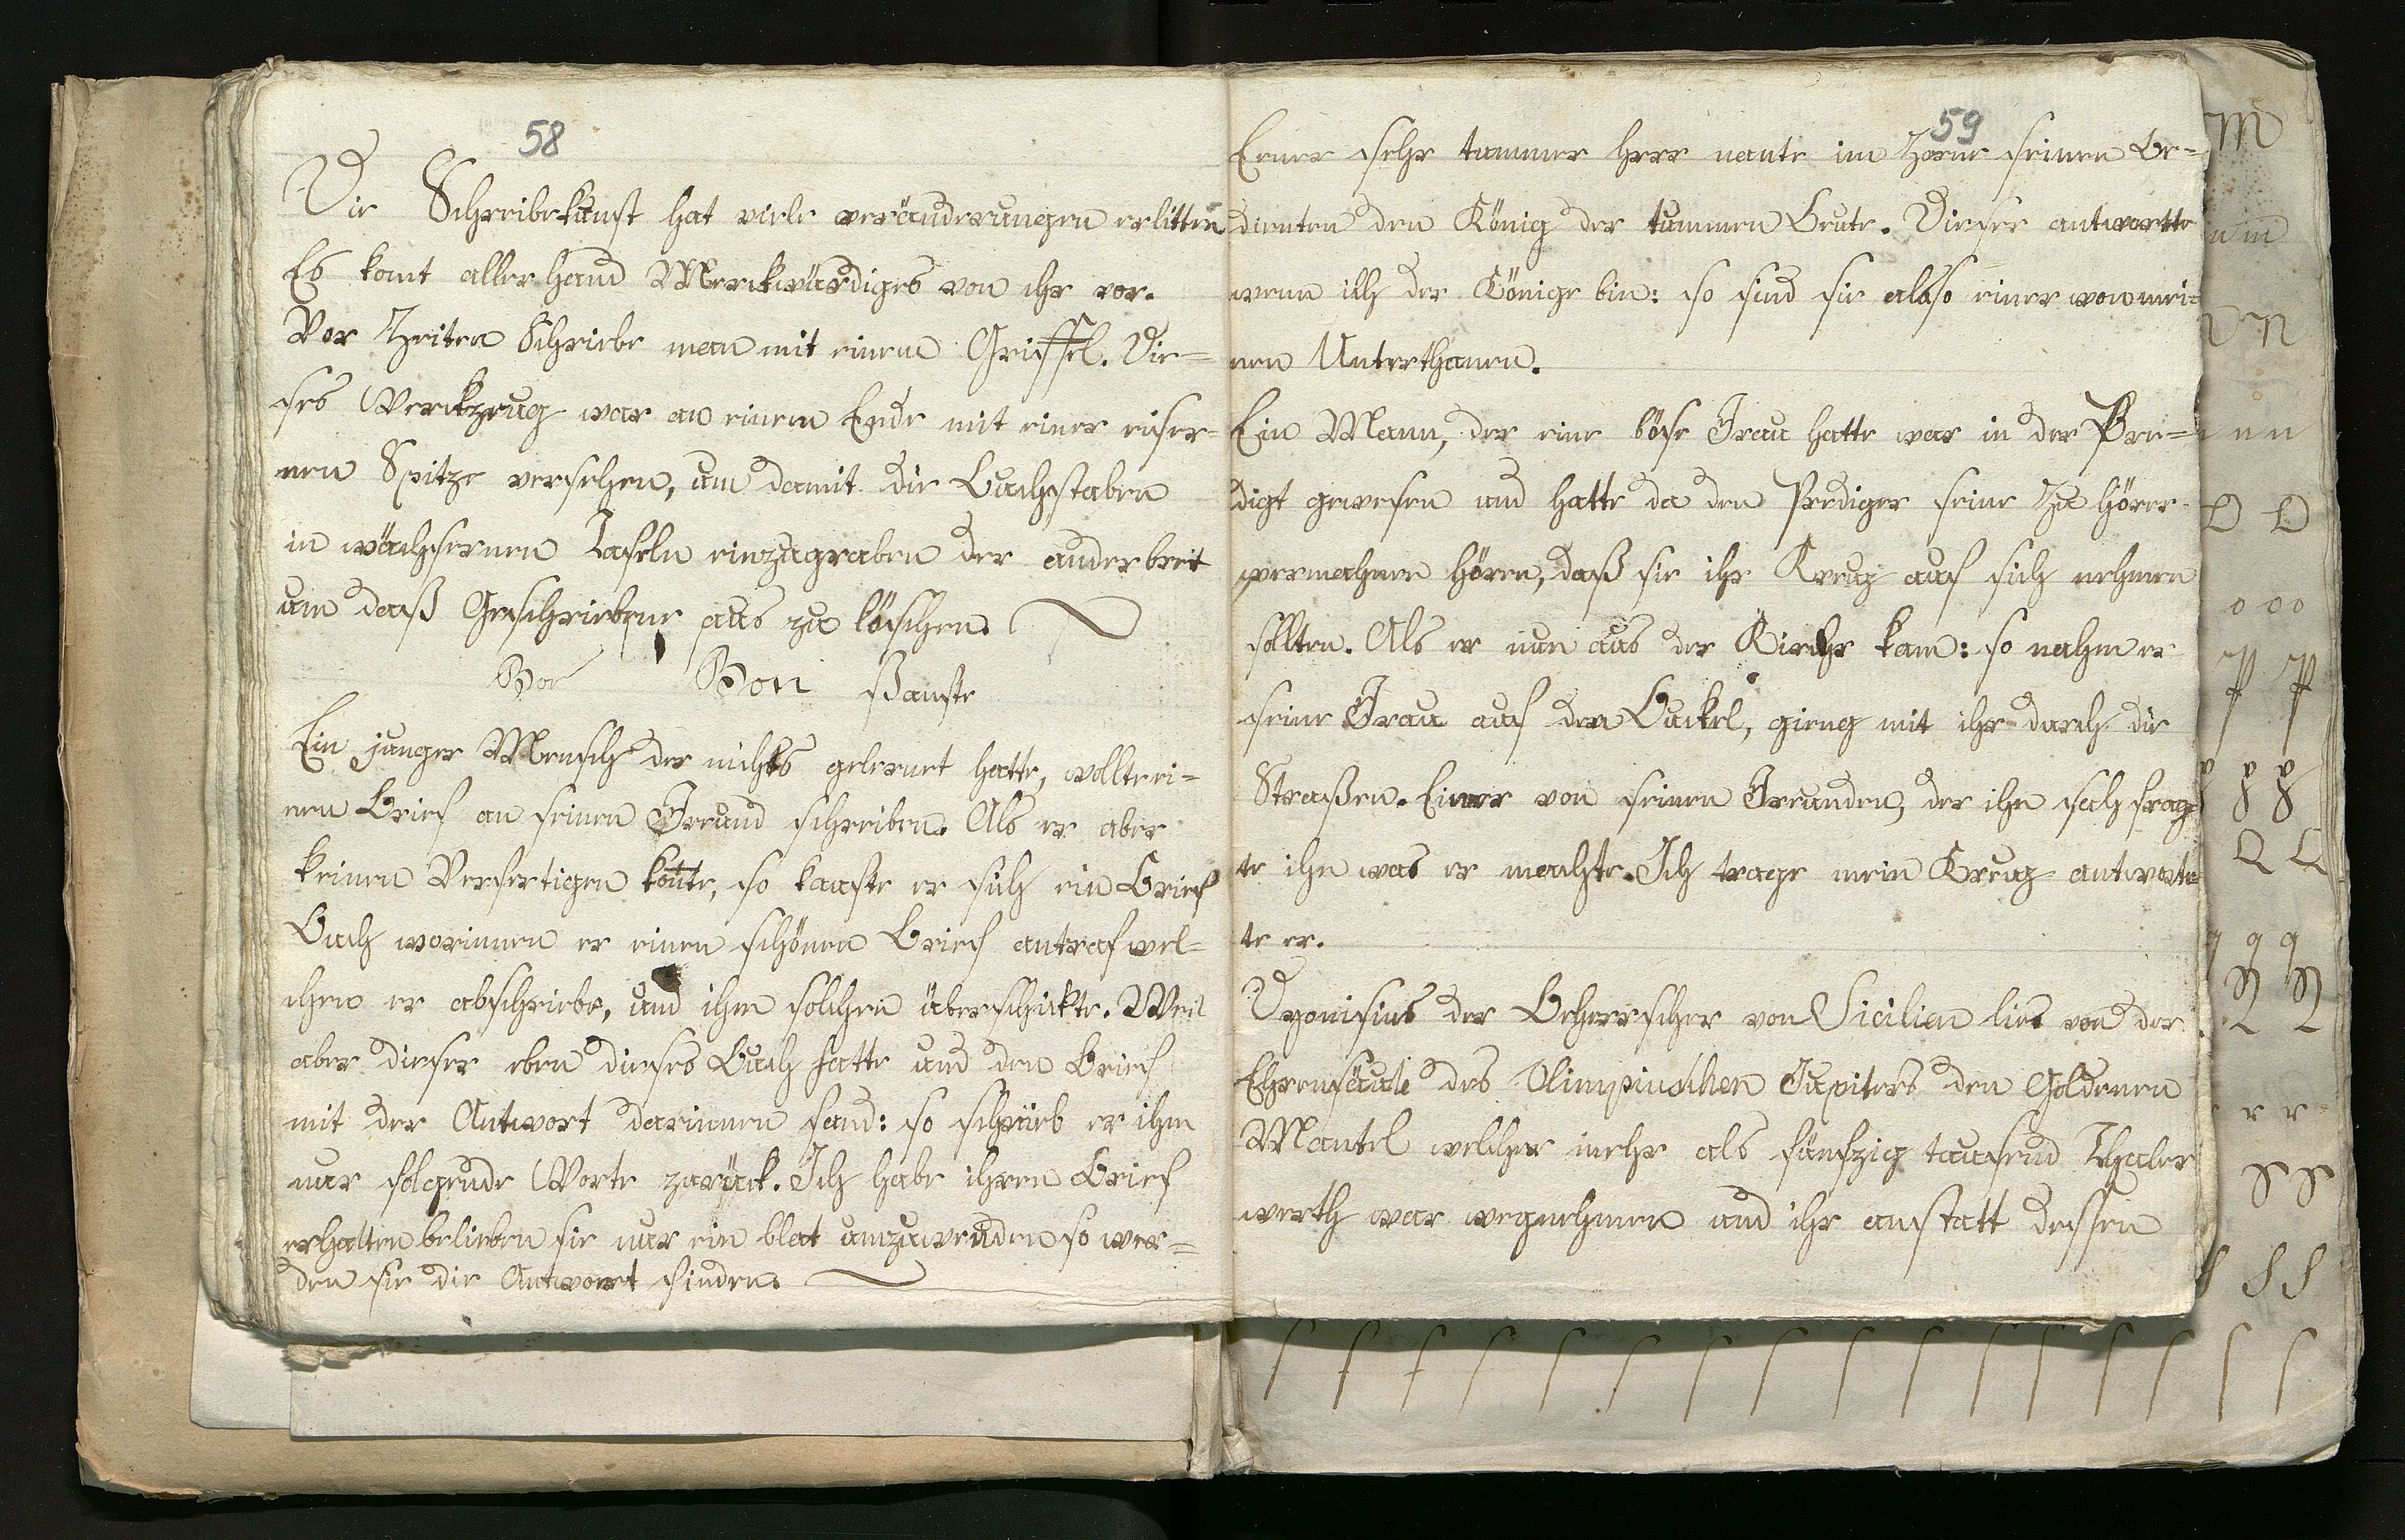 58
Die Schreibekunst hat viele veränderungen erlitten
Es komt aller hand Merckwürdiges von ihr vor.
Vor Zeiten Schriebe man mit einem Griffel. Die=
ses Werckzeug war an einem Ende mit einer eiser=
nen Spitze versehen, um damit die Buchstaben
in wächsernen Tafeln einzugraben der ander breit
um daß Geschriebene aus zu löschen.
Vor Von
Ein junger Mensch der nichts gelernet hatte, wollte ei=
nen Brief an seinen Freund schreiben. Als er aber
keinen Verfertigen konte, so kaufte er sich ein Brief
Buch worinnen er einen schönen Brief antraf wel=
chen er abschriebe, und ihm solchen überschickte. Weil
aber dieser eben dieses Buch hatte und den Brief
mit der Antwort darinnen fand: so schrieb er ihm
nur folgende Worte zurück. Ich habe ihren Brief
erhalten belieben sie nur ein blat umzuwenden so wer=
den sie die Antwort finden.
59
Einer sehr tummer Herr nante im Zorne seinen Be=
dienten den König der tummen Leute. Dieser antwortte
wenn ich der Könige bin: so sind sie also einer von mei=
nen Unterthanen.
Ein Mann, der eine böse Frau hatte war in der Pre=
digt gewesen und hatte da den Prediger seine Zu hörer
vermahnen hören, daß sie ihr Kreuz auf sich nehmen
sollten. Als er nun aus der Kirche kam: so nahm er
seine Frau auf den Buckel, gieng mit ihr durch die
Straßen. Einer von seinen Freunden, der ihn sah frag=
te ihn was er machte. Ich trage mein Kreuz antworte=
te er.
Dyonisius der Beherrscher von Sicilien lies von der
Ehrensäule des Olimpinschen Jupiters den Goldenen
Mantel welcher mehr als fünfzig tausend Thaler
werth war wegnehmen und ihr anstatt dessen